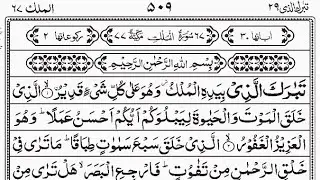 تبٰرك الذی ٢٩ ٥٠٩ الملك ٦٧
اٰیاتها ٣٠ ٦٧ سُوْرَةُ الْمُلْكِ مَكِّیَّةٌ ٧٧ رکوعاتها ٢
بِسْمِ اللّٰهِ الرَّحْمٰنِ الرَّحِیْمِ
تَبٰرَكَ الَّذِیْ بِیَدِهِ الْمُلْكُ وَهُوَ عَلٰی كُلِّ شَیْءٍ قَدِیْرُ ۙ الَّذِیْ
خَلَقَ الْمَوْتَ وَالْحَیٰوةَ لِیَبْلُوَكُمْ اَیُّكُمْ اَحْسَنُ عَمَلًا ؕ وَهُوَ
الْعَزِیْزُ الْغَفُوْرُ ۙ الَّذِیْ خَلَقَ سَبْعَ سَمٰوٰتٍ طِبَاقًا ؕ مَا تَرٰی فِیْ
خَلْقِ الرَّحْمٰنِ مِنْ تَفٰوُتٍ ؕ فَارْجِعِ الْبَصَرَ ۙ هَلْ تَرٰی مِنْ